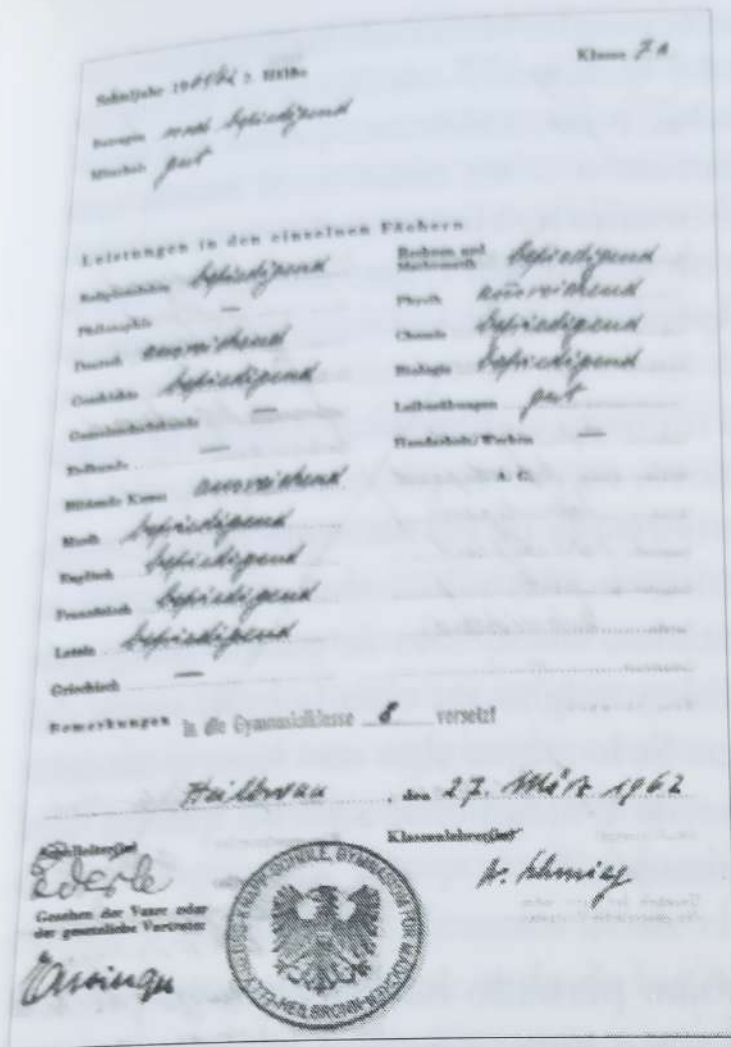 Schuljahr 1961/62 2. Hälfte
Klasse 7a
Betragen noch befriedigend
Mitarbeit gut
Leistungen in den einzelnen Fächern
Religionslehre befriedigend
Philosophie —
Deutsch ausreichend
Geschichte befriedigend
Gemeinschaftskunde —
Erdkunde —
Bildende Kunst ausreichend
Musik befriedigend
Englisch befriedigend
Französisch befriedigend
Latein befriedigend
Griechisch —
Rechnen und
Mathematik befriedigend
Physik ausreichend
Chemie befriedigend
Biologie befriedigend
Leibesübungen gut
Handarbeit/Werken —
Bemerkungen in die Gymnasialklasse 8 versetzt
Heilbronn, den 27. März 1962
Schulleiter(in)
Ederle
Gesehen der Vater oder
der gesetzliche Vertreter
Klassenlehrer(in)
GYMNASIUM FÜR
HEILBRONN